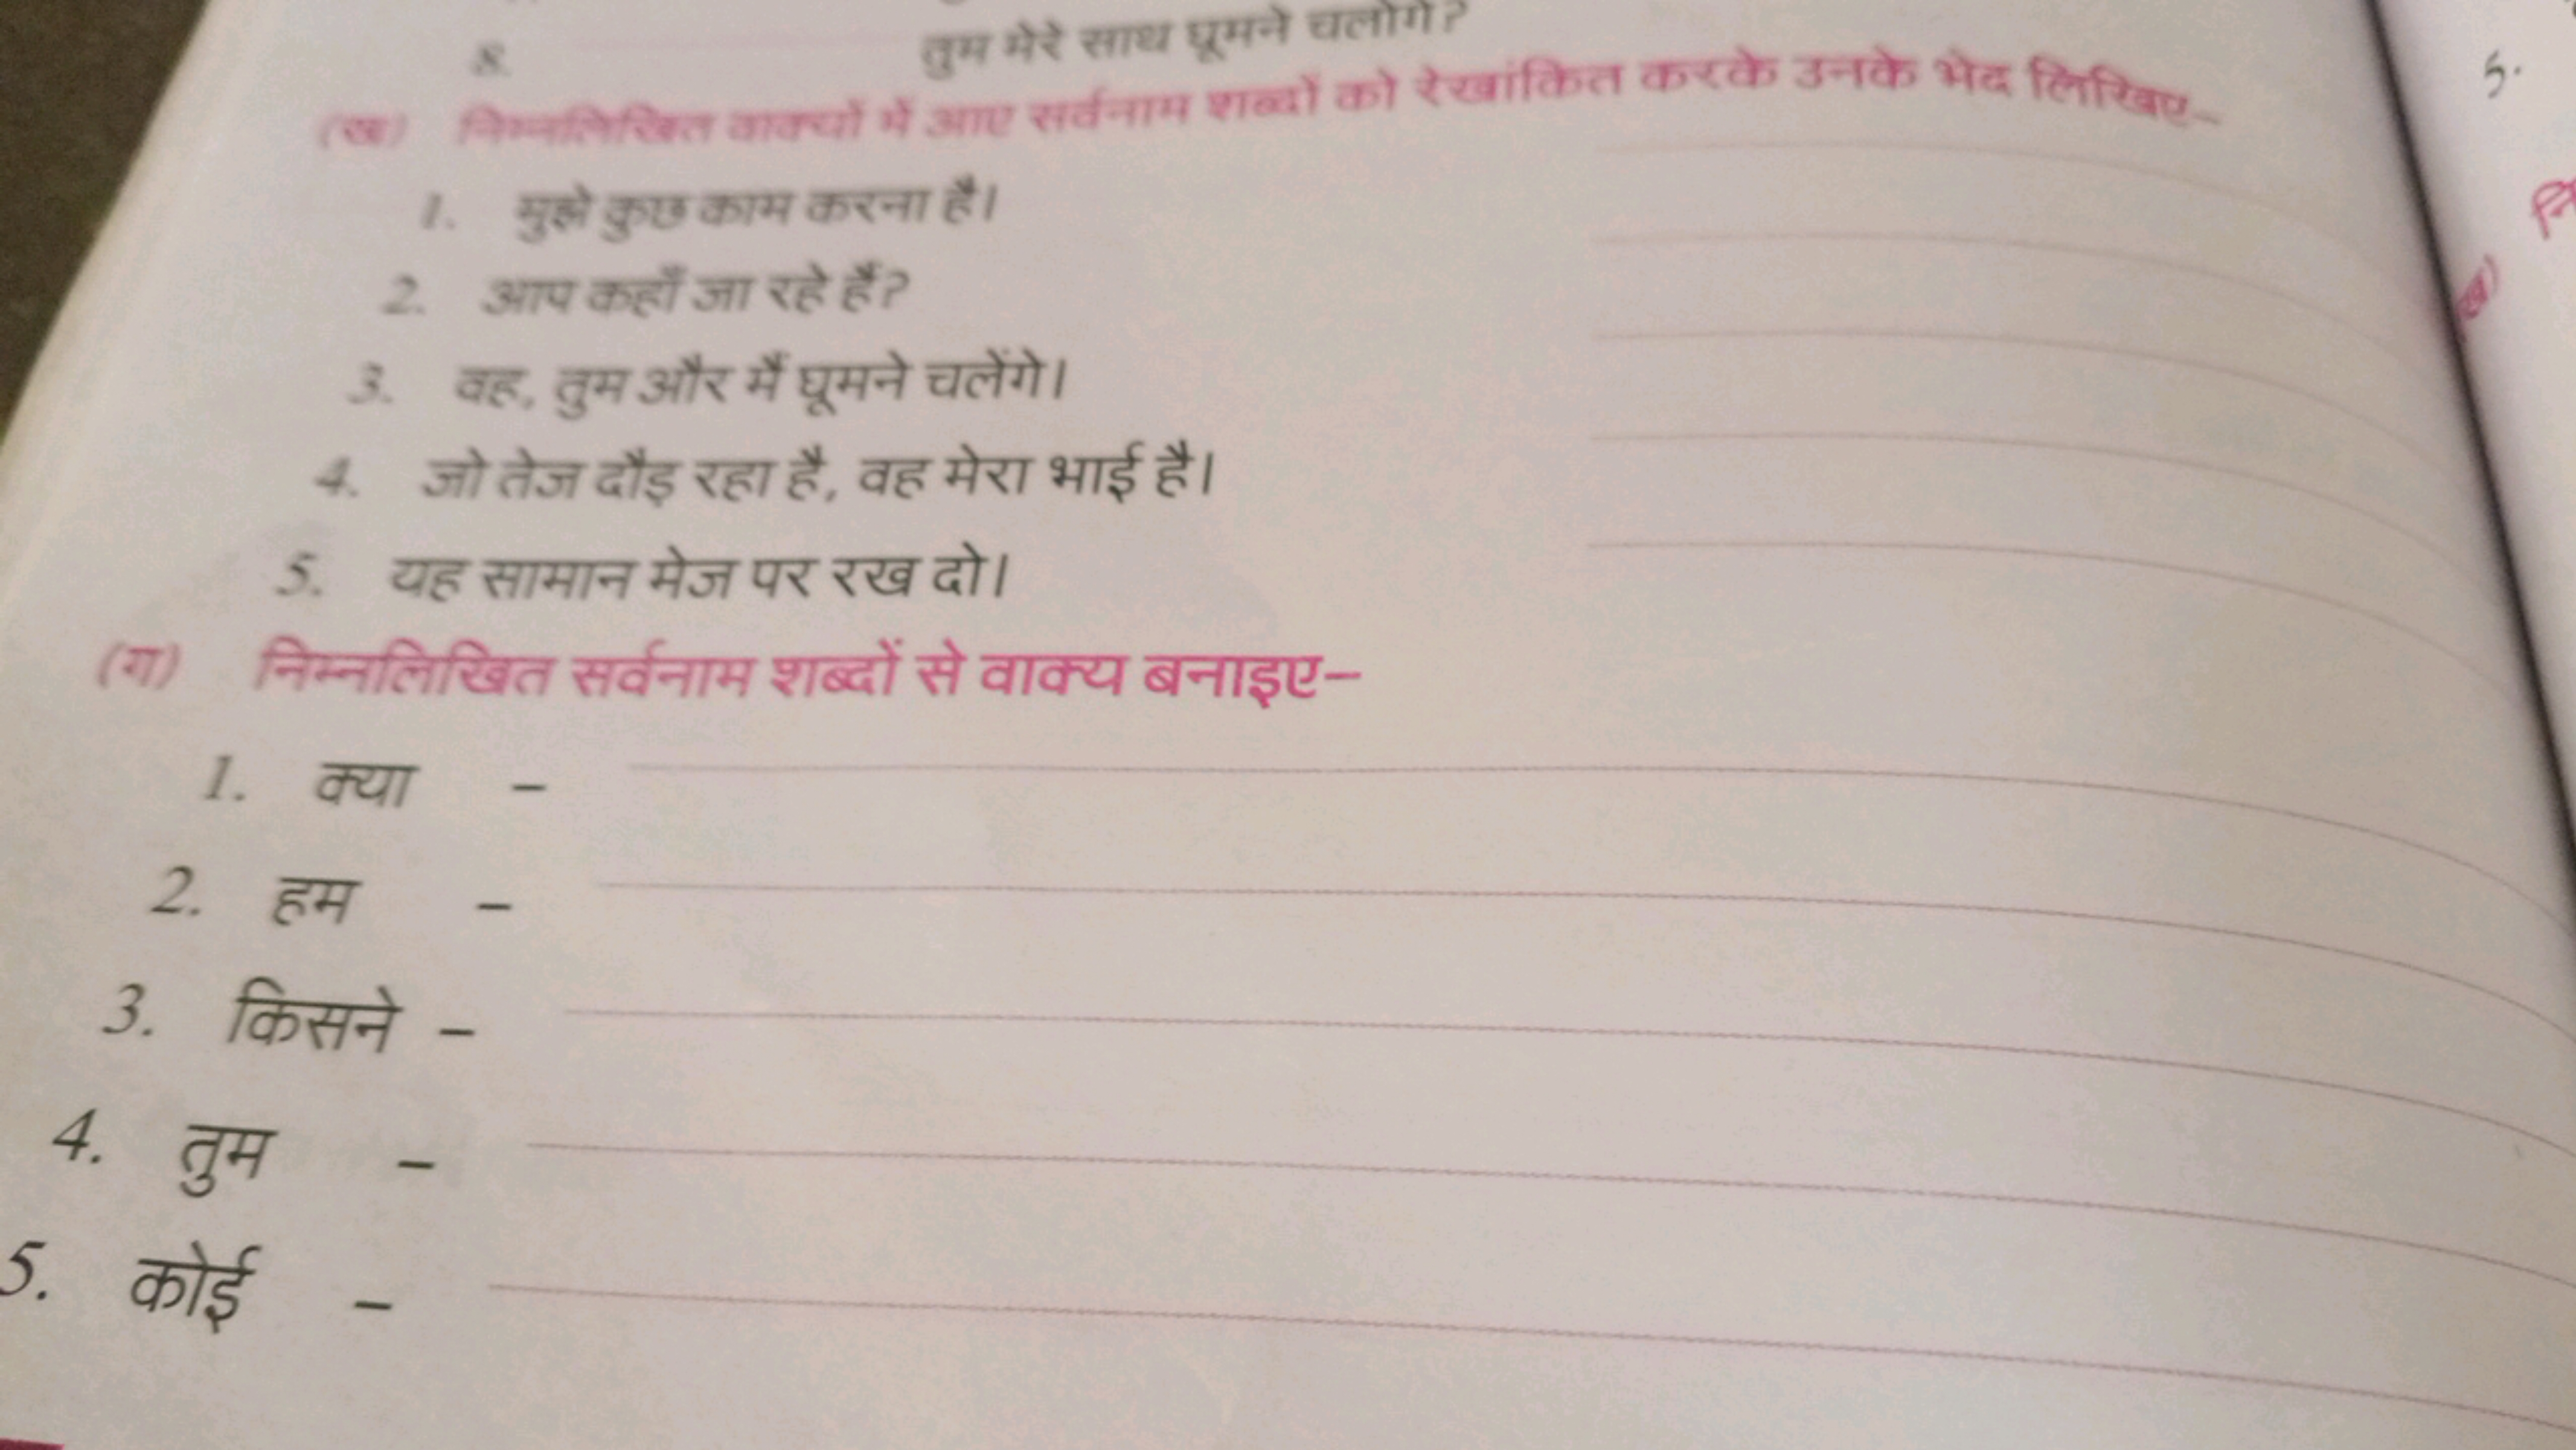 8. तुम मेरे साथ घूमने चलोगे?
5.
(ख) निम्नलिखित वाक्यों में आए सर्वनाम शब्दों को रेखांकित करके उनके भेद लिखिए–
1. मुझे कुछ काम करना है।
2. आप कहाँ जा रहे हैं?
3. वह, तुम और मैं घूमने चलेंगे।
4. जो तेज दौड़ रहा है, वह मेरा भाई है।
5. यह सामान मेज पर रख दो।
(ग) निम्नलिखित सर्वनाम शब्दों से वाक्य बनाइए–
1. क्या –
2. हम –
3. किसने –
4. तुम –
5. कोई –